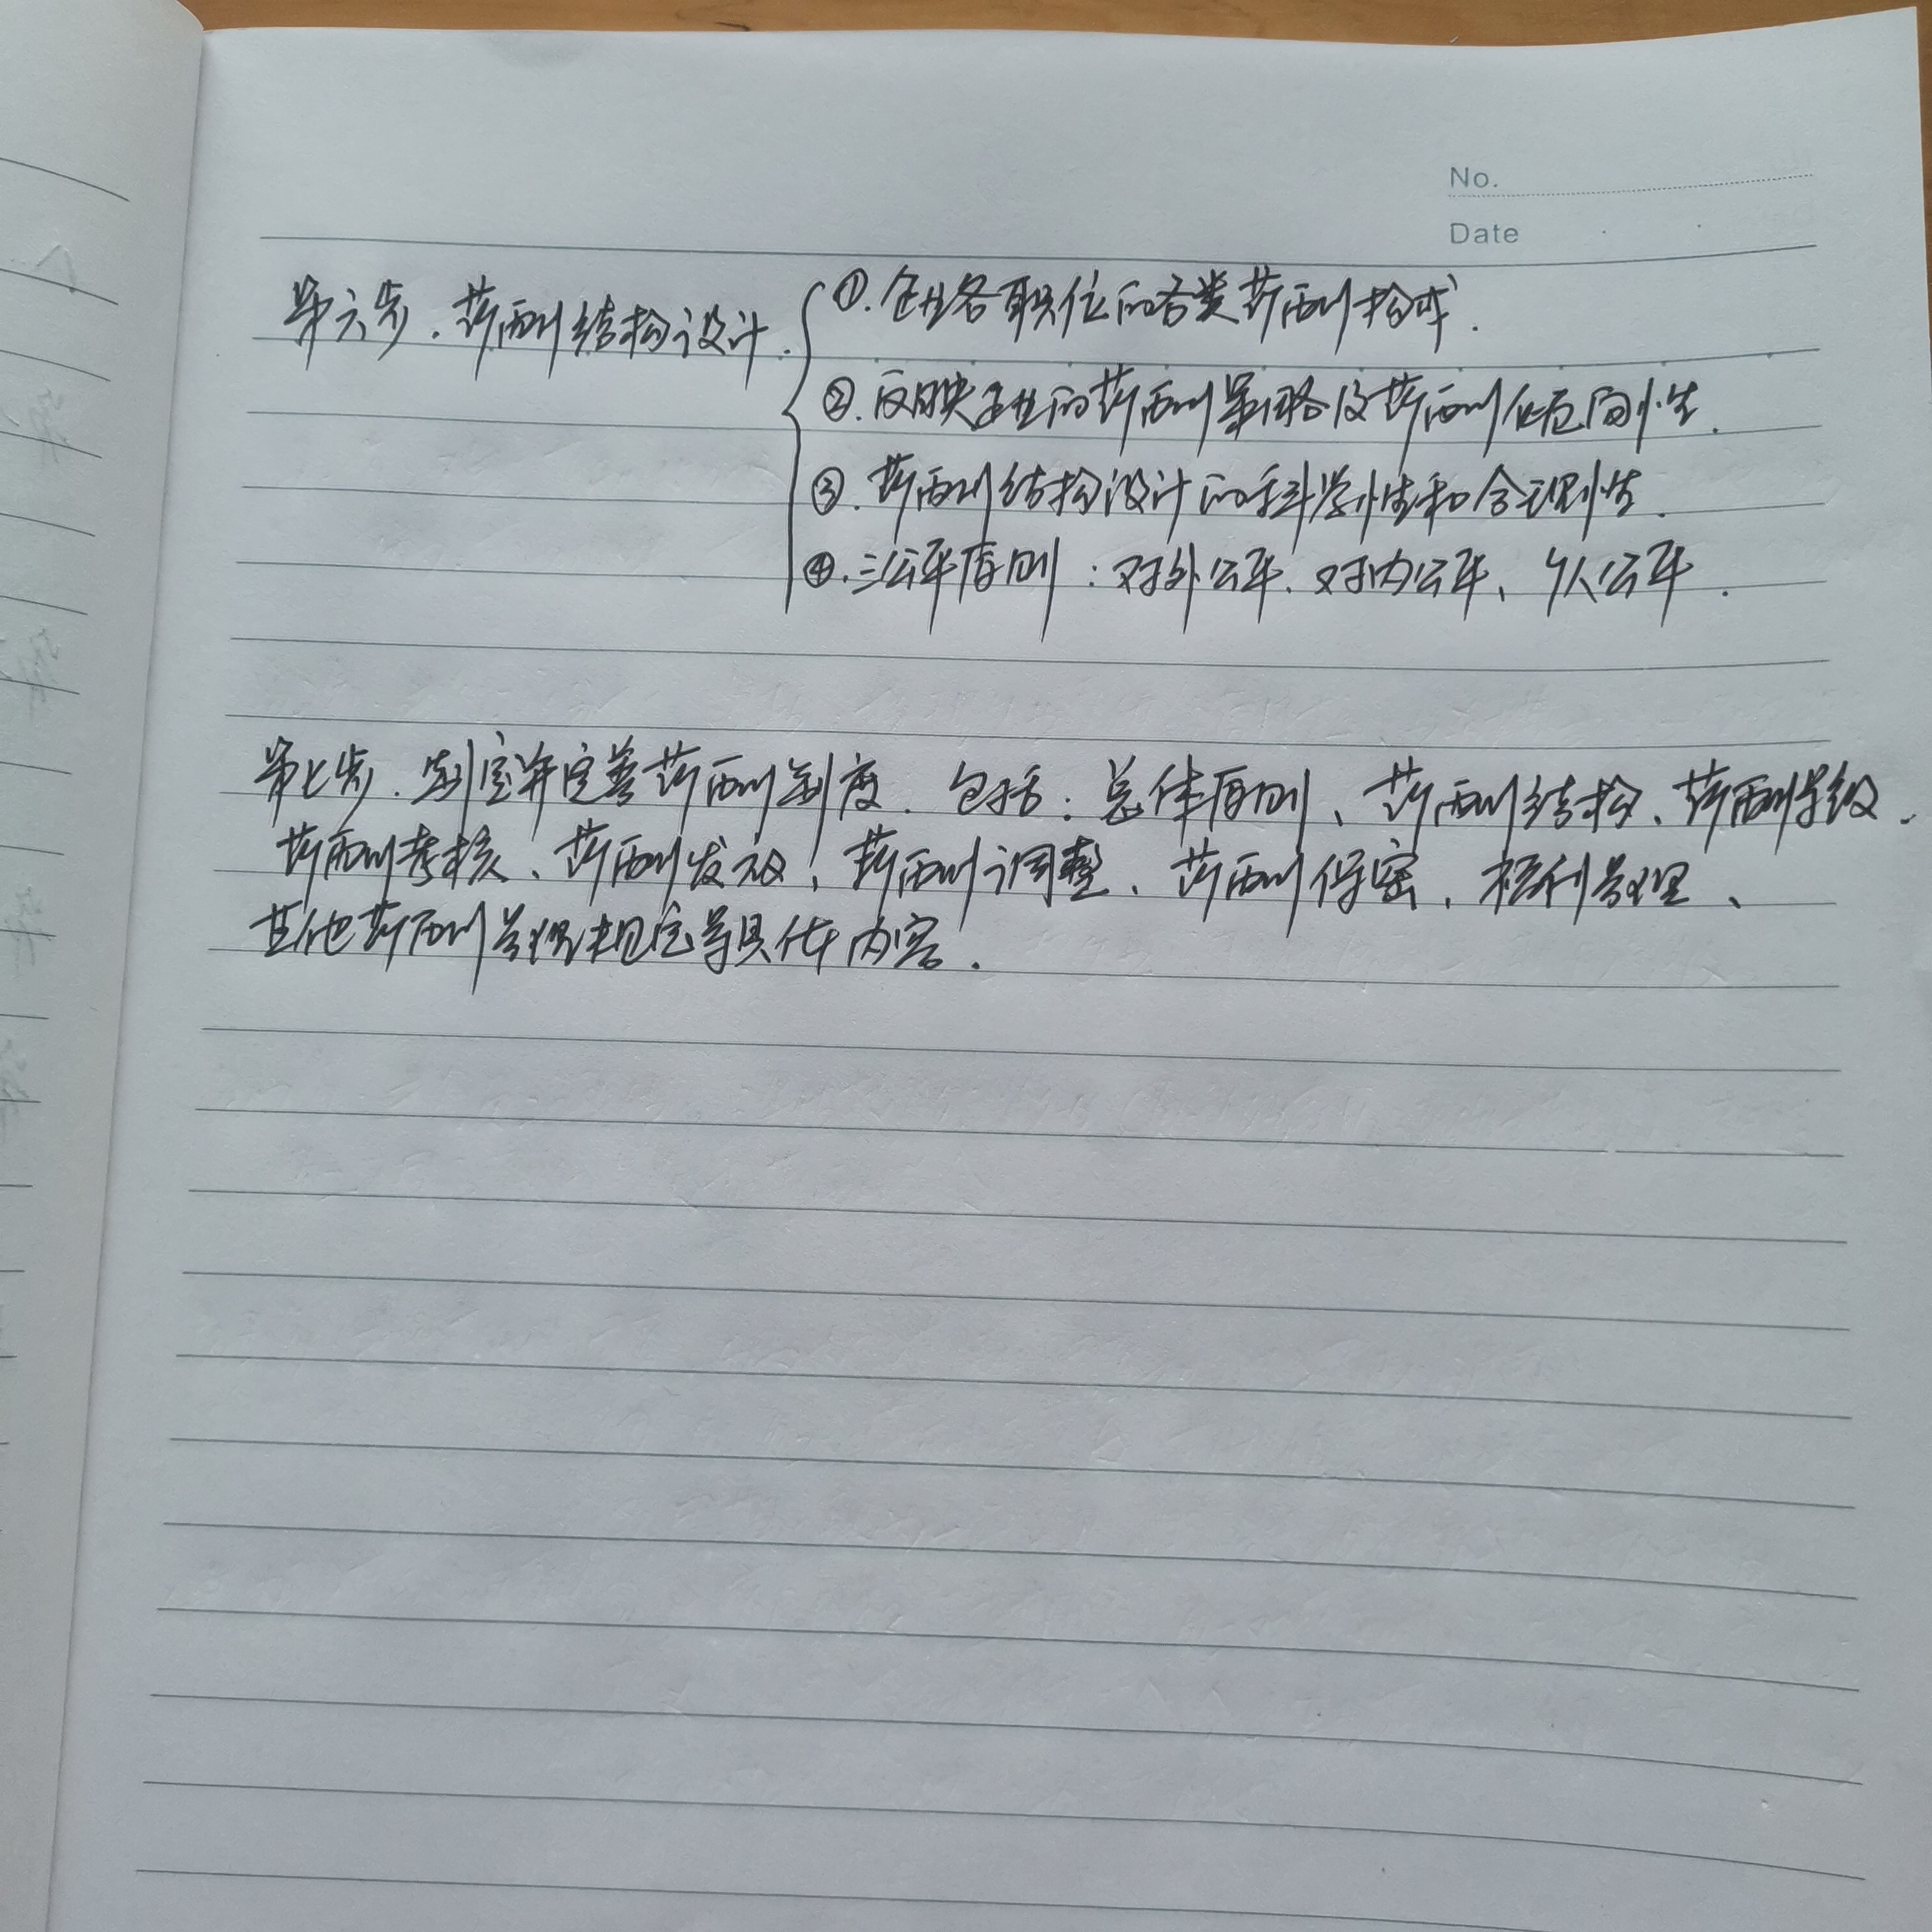 No.
Date
第六步.薪酬结构设计.
①.企业各职位的各类薪酬构成.
②.反映企业的薪酬策略及薪酬低差向性.
③.薪酬结构设计的科学性和合理性.
④.三公平原则:对外公平、对内公平、个人公平.
第七步.制定并完善薪酬制度.包括:总体原则、薪酬结构、薪酬等级、
薪酬考核、薪酬发放、薪酬调整、薪酬保密、福利管理、
其他薪酬管理规定等具体内容.